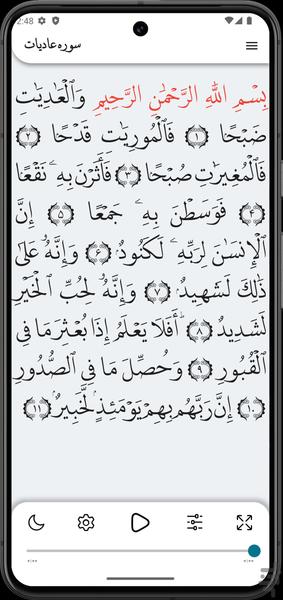 2:48
سوره عادیات
بِسْمِ اللَّهِ الرَّحْمَٰنِ الرَّحِيمِ وَٱلْعَٰدِيَٰتِ
ضَبْحًا ﴿١﴾ فَٱلْمُورِيَٰتِ قَدْحًا ﴿٢﴾
فَٱلْمُغِيرَٰتِ صُبْحًا ﴿٣﴾ فَأَثَرْنَ بِهِۦ نَقْعًا
﴿٤﴾ فَوَسَطْنَ بِهِۦ جَمْعًا ﴿٥﴾ إِنَّ
ٱلْإِنسَٰنَ لِرَبِّهِۦ لَكَنُودٌ ﴿٦﴾ وَإِنَّهُۥ عَلَىٰ
ذَٰلِكَ لَشَهِيدٌ ﴿٧﴾ وَإِنَّهُۥ لِحُبِّ ٱلْخَيْرِ
لَشَدِيدٌ ﴿٨﴾ أَفَلَا يَعْلَمُ إِذَا بُعْثِرَ مَا فِى
ٱلْقُبُورِ ﴿٩﴾ وَحُصِّلَ مَا فِى ٱلصُّدُورِ
﴿١٠﴾ إِنَّ رَبَّهُم بِهِمْ يَوْمَئِذٍ لَّخَبِيرٌ ﴿١١﴾
--:-- --:--